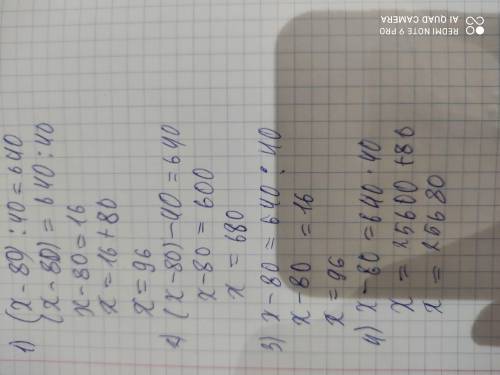 1) (x-80):40=640
(x-80)=640:40
x-80=16
x=16+80
x=96
2) (x-80)-40=640
x-80=600
x=680
3) x-80=640:40
x-80=16
x=96
4) x-80=640·40
x=25600+80
x=25680
REDMI NOTE 9 PRO
AI QUAD CAMERA